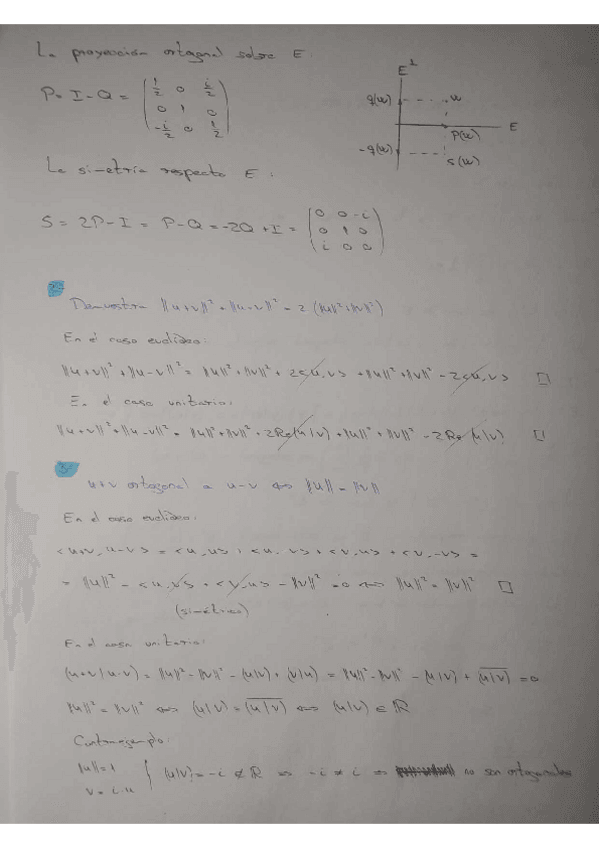 La proyección ortogonal sobre E:
P = I - Q = ( 1/2 0 i/2 ; 0 1 0 ; -i/2 0 1/2 )
E⊥
q(u) u
E
p(u)
-q(u) s(u)
La simetría respecto E:
S = 2P - I = P - Q = -2Q + I = ( 0 0 -i ; 0 1 0 ; i 0 0 )
2-
Demuestra ||u+v||² + ||u-v||² = 2 (||u||² + ||v||²)
En el caso euclídeo:
||u+v||² + ||u-v||² = ||u||² + ||v||² + 2<u,v> + ||u||² + ||v||² - 2<u,v> □
En el caso unitario:
||u+v||² + ||u-v||² = ||u||² + ||v||² + 2Re(u|v) + ||u||² + ||v||² - 2Re(u|v) □
3-
u+v ortogonal a u-v ⇔ ||u|| = ||v||
En el caso euclídeo:
<u+v, u-v> = <u,u> + <u,-v> + <v,u> + <v,-v> =
= ||u||² - <u,v> + <v,u> - ||v||² = 0 ⇔ ||u||² = ||v||² □
(simétrico)
En el caso unitario:
(u+v|u-v) = ||u||² - ||v||² - (u|v) + (v|u) = ||u||² - ||v||² - (u|v) + \overline{(u|v)} = 0
||u||² = ||v||² ⇔ (u|v) = \overline{(u|v)} ⇔ (u|v) ∈ ℝ
Contraejemplo:
||u|| = 1
v = i·u } (u|v) = -i ∉ ℝ ⇒ -i ≠ i ⇒ no son ortogonales